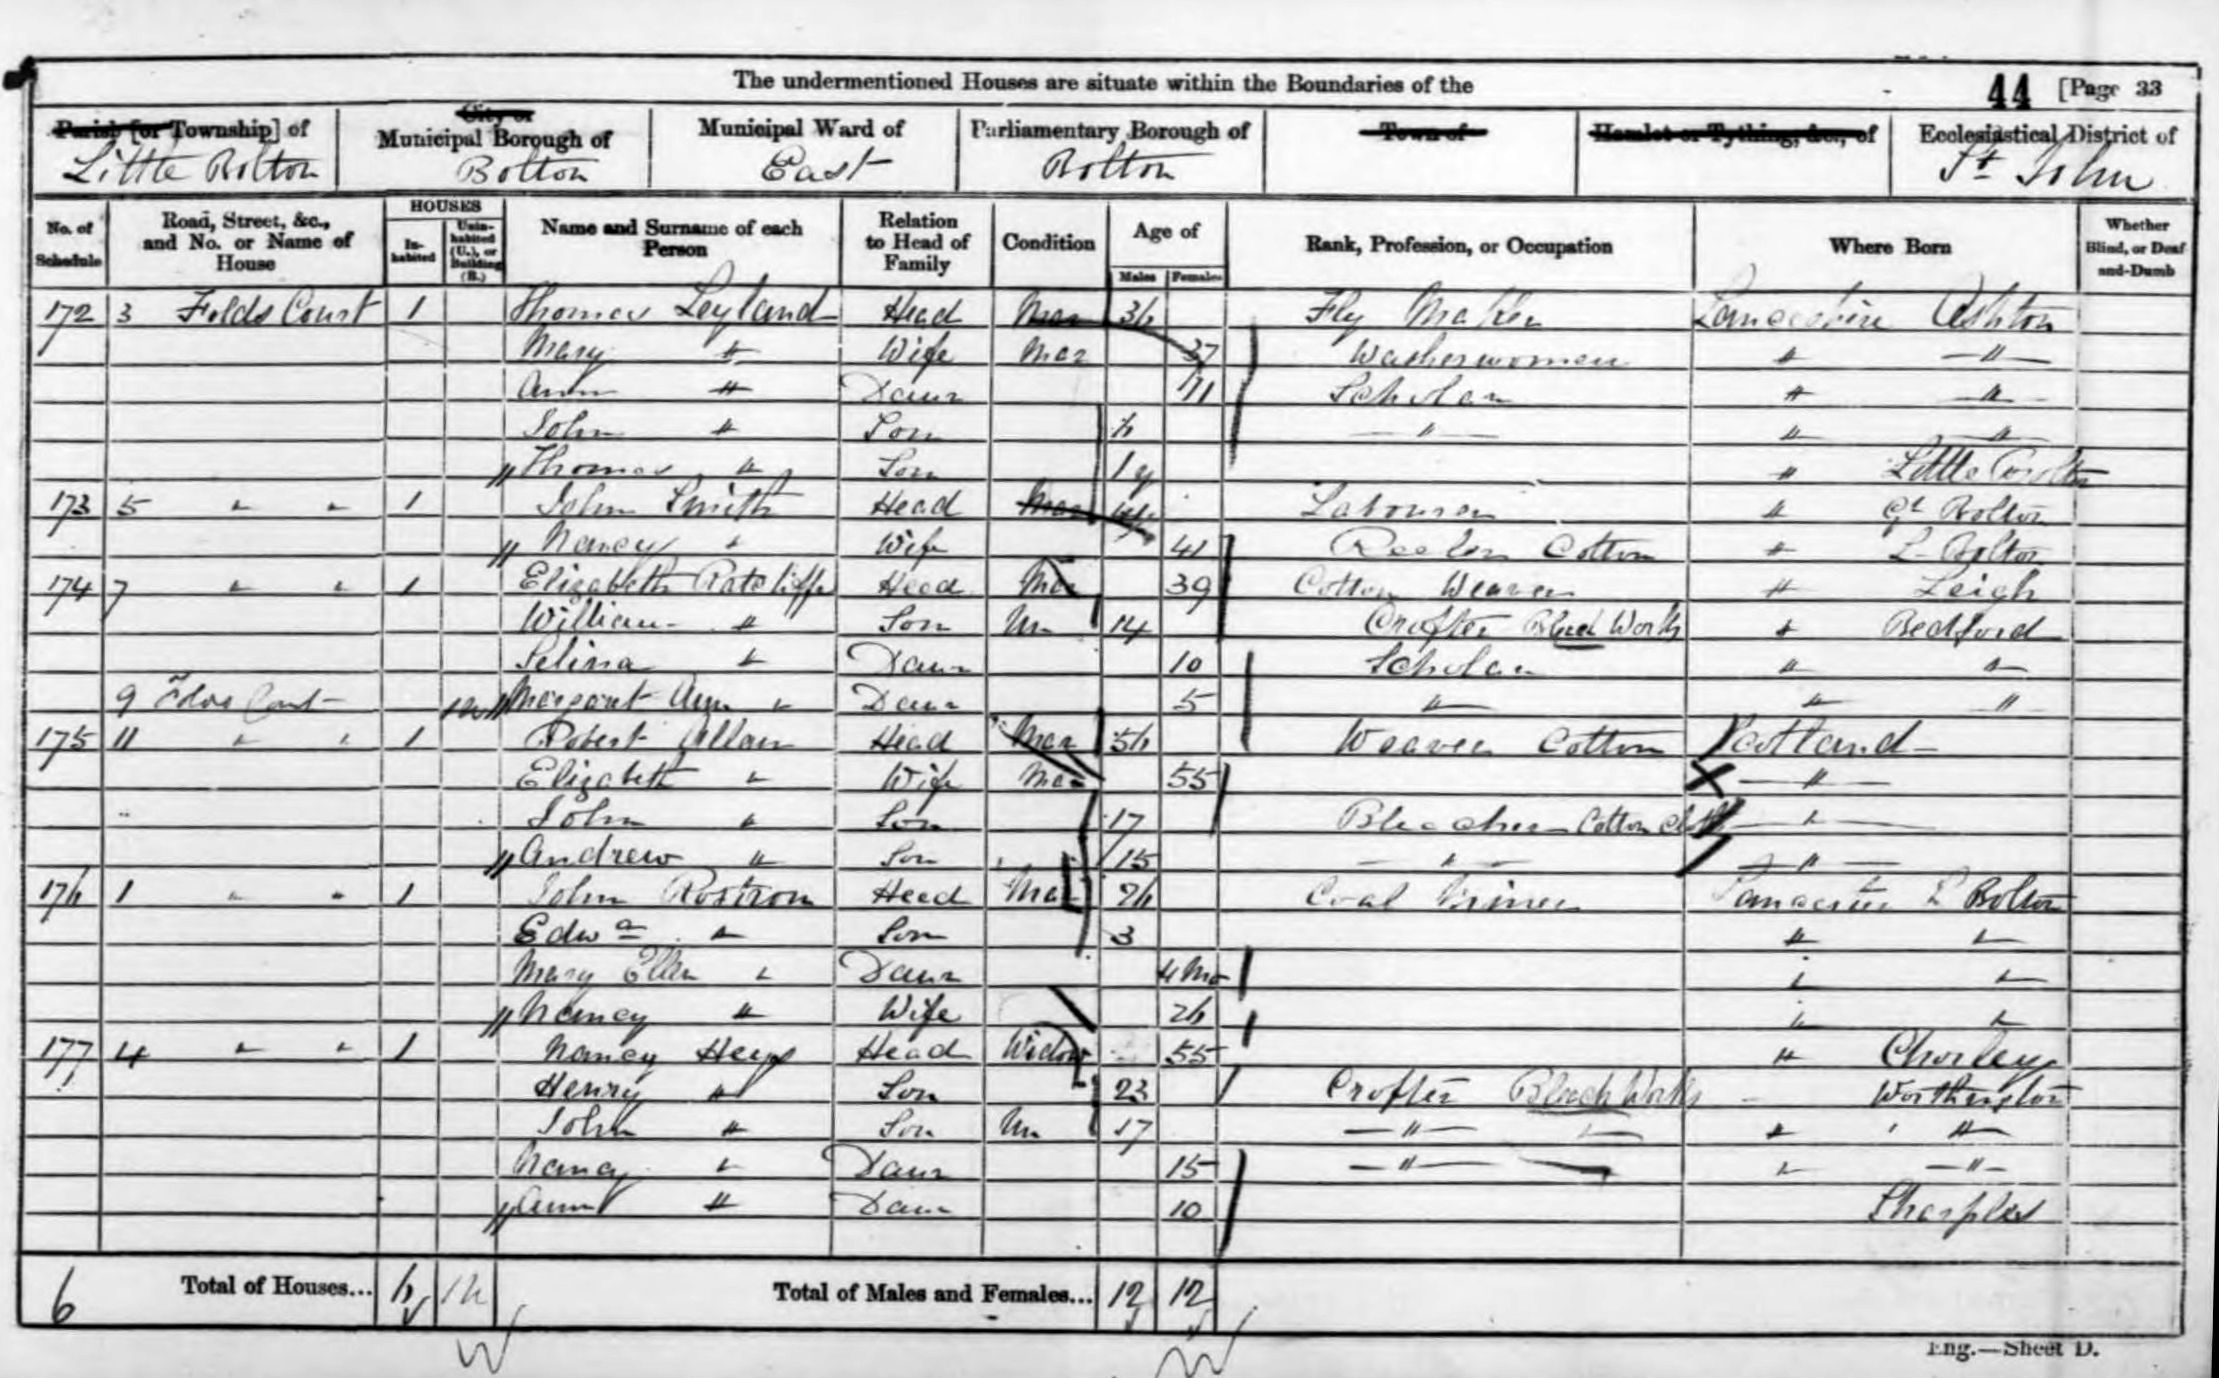 The undermentioned Houses are situate within the Boundaries of the
44 [Page 33
Parish [or Township] of
Little Bolton
City or
Municipal Borough of
Bolton
Municipal Ward of
East
Parliamentary Borough of
Bolton
Town of
Hamlet or Tything, &c., of
Ecclesiastical District of
St John
No. of Schedule
Road, Street, &c., and No. or Name of House
HOUSES
Inhabited
Uninhabited (U.), or Building (B.)
Name and Surname of each Person
Relation to Head of Family
Condition
Age of
Males Females
Rank, Profession, or Occupation
Where Born
Whether Blind, or Deaf-and-Dumb
172 3 Folds Court 1 Thomas Leyland Head Mar 36 Fly Maker Lancashire Ashton
Mary " Wife Mar 37 Washerwoman " "
Ann " Daur 11 Scholar " "
John " Son 6 " " "
" Thomas " Son 1 " Little Bolton
173 5 " " 1 John Smith Head Mar Labourer " Gt Bolton
" Nancy " Wife 41 Reeler Cotton " L Bolton
174 7 " " 1 Elizabeth Ratcliffe Head Mar 39 Cotton Weaver " Leigh
William " Son Un 14 Crofter Bleach Works " Bedford
Selina " Daur 10 Scholar " "
9 Folds Court 1U " Margaret Ann " Daur 5 " " "
175 11 " " 1 Robert Allan Head Mar 56 Weaver Cotton Scotland
Elizabeth " Wife Mar 55 "
John " Son 17 Bleacher Cotton Cloth "
" Andrew " Son 15 " "
176 1 " " 1 John Rostron Head Mar 26 Coal Miner Lancaster L Bolton
Edwd " Son 3 " "
Mary Ellen " Daur 4 Mo " "
" Nancy " Wife 26 " "
177 4 " " 1 Nancy Heys Head Widow 55 " Chorley
Henry " Son 23 Crofter Bleach Works " Worthington
John " Son Un 17 " " " "
Nancy " Daur 15 " " " "
" Ann " Daur 10 Sharples
6 Total of Houses... 6 1U Total of Males and Females... 12 12
Eng.—Sheet D.